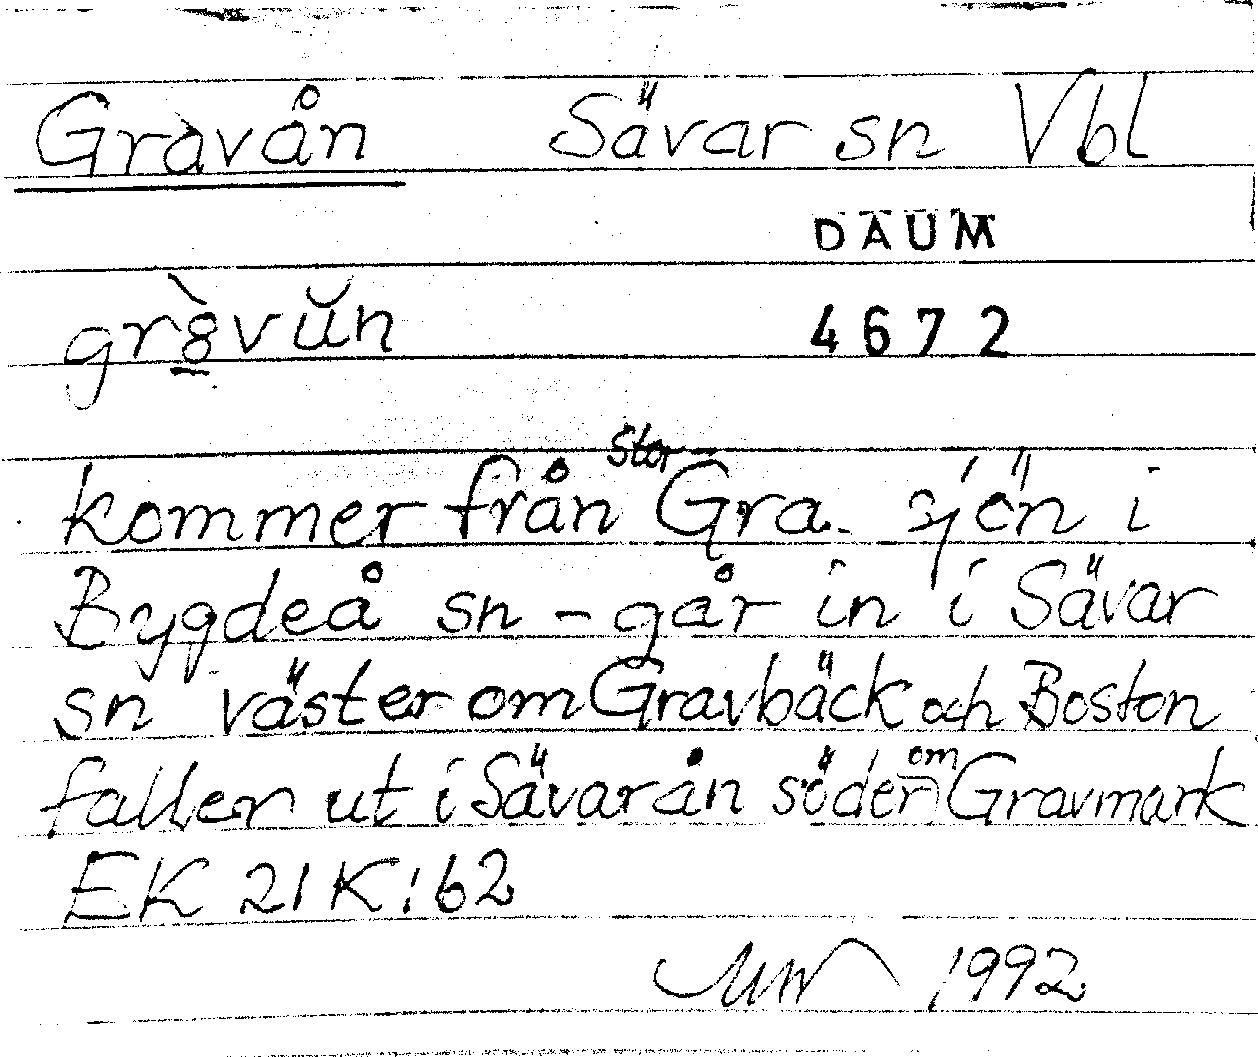 Gravån Sävar sn Vbl
DAUM
4672
kommer från Stor Gra- sjön i
Bygdeå sn - går in i Sävar
sn väster om Gravbäck och Boston
faller ut i Sävarån söder om Gravmark
EK 21 K:62
1992